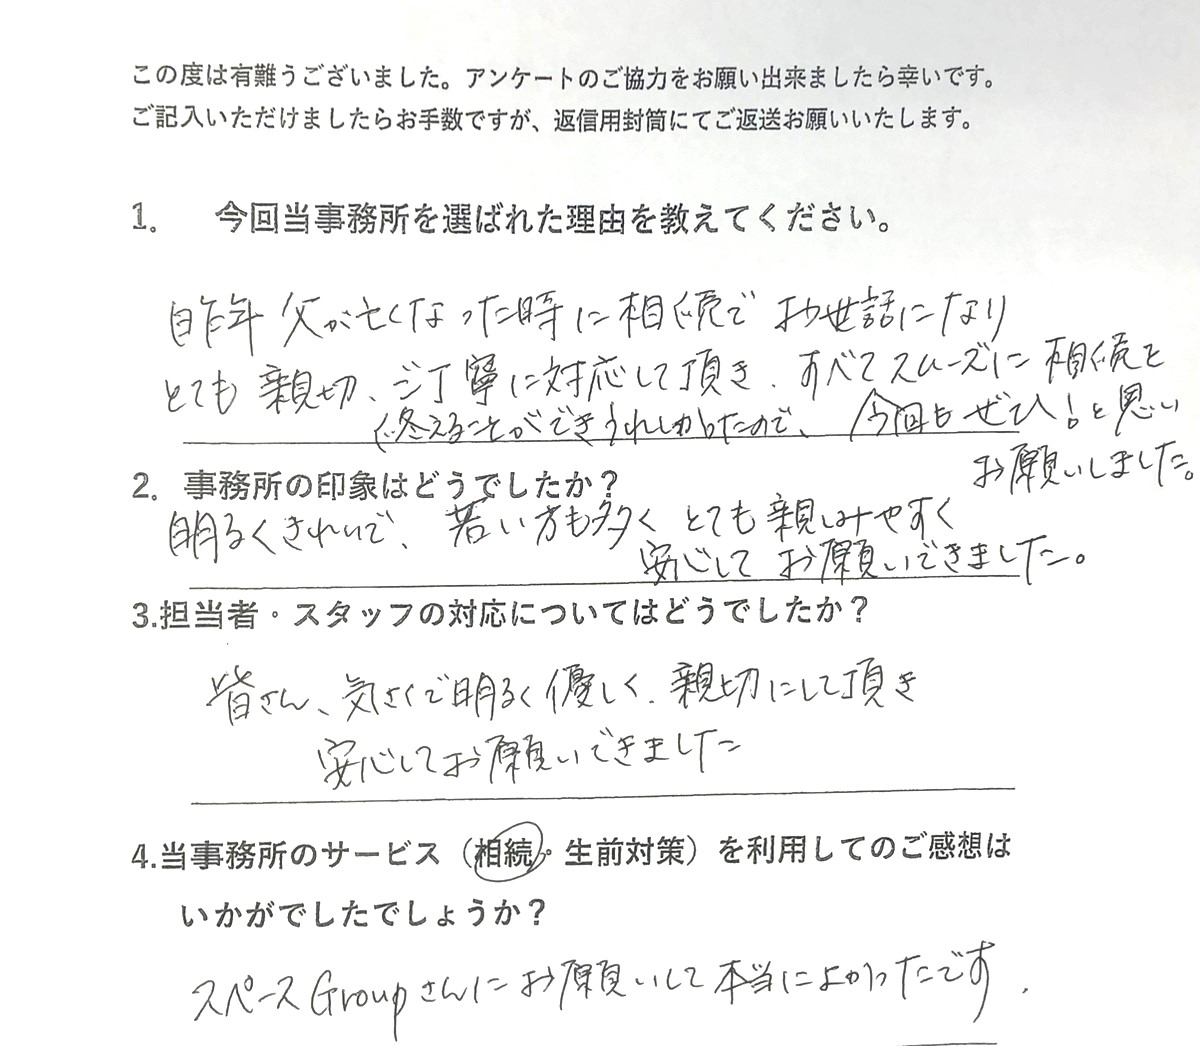 この度は有難うございました。アンケートのご協力をお願い出来ましたら幸いです。
ご記入いただけましたらお手数ですが、返信用封筒にてご返送お願いいたします。
1. 今回当事務所を選ばれた理由を教えてください。
昨年 父が亡くなった時に相続で お世話になり
とても 親切、ご丁寧に対応して頂き、すべてスムーズに 相続を
終えることができうれしかったので、今回もぜひ!と思い
お願いしました。
2. 事務所の印象はどうでしたか?
明るくきれいで、若い方も多く とても 親しみやすく
安心して お願いできました。
3.担当者・スタッフの対応についてはどうでしたか?
皆さん、気さくで明るく優しく、親切にして頂き
安心してお願いできました
4.当事務所のサービス(相続・生前対策)を利用してのご感想は
いかがでしたでしょうか?
スペースGroupさんにお願いして本当によかったです.